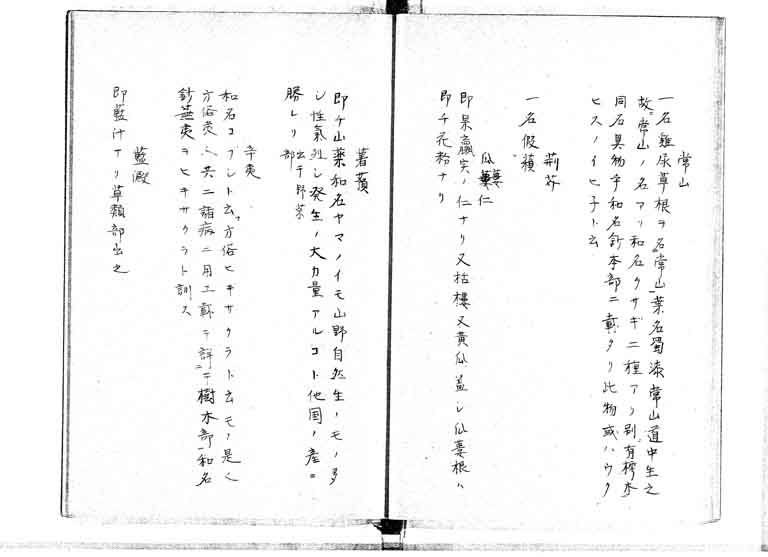 常山
一名雞尿草根ヲ名常山葉名蜀漆常山道中生之
故常山ノ名アリ和名クサギ二種アリ別有樗木
同名異物乎和名鈔本部ニ載タリ此物或ハウク
ヒスノイヒ子ト云
荊芥
一名假蘇
瓜蔞仁
即果蠃実ノ仁ナリ又栝樓又黄瓜蓋シ瓜蔞根ハ
即チ花粉ナリ
薯蕷
即チ山薬和名ヤマノイモ山野自然生ノモノ多
シ性氣烈シ発生ノ大力量アルコト他国ノ産ニ
勝レリ出于野菜部
辛夷
和名コブシト云方俗ヒキサクラト云モノ是
方俗荑ハ共ニ諸病ニ用工載テ詳ニ樹木部和名
鈔蕪荑ヲヒキサクラト訓ス
藍澱
即藍汁ナリ草類部出之